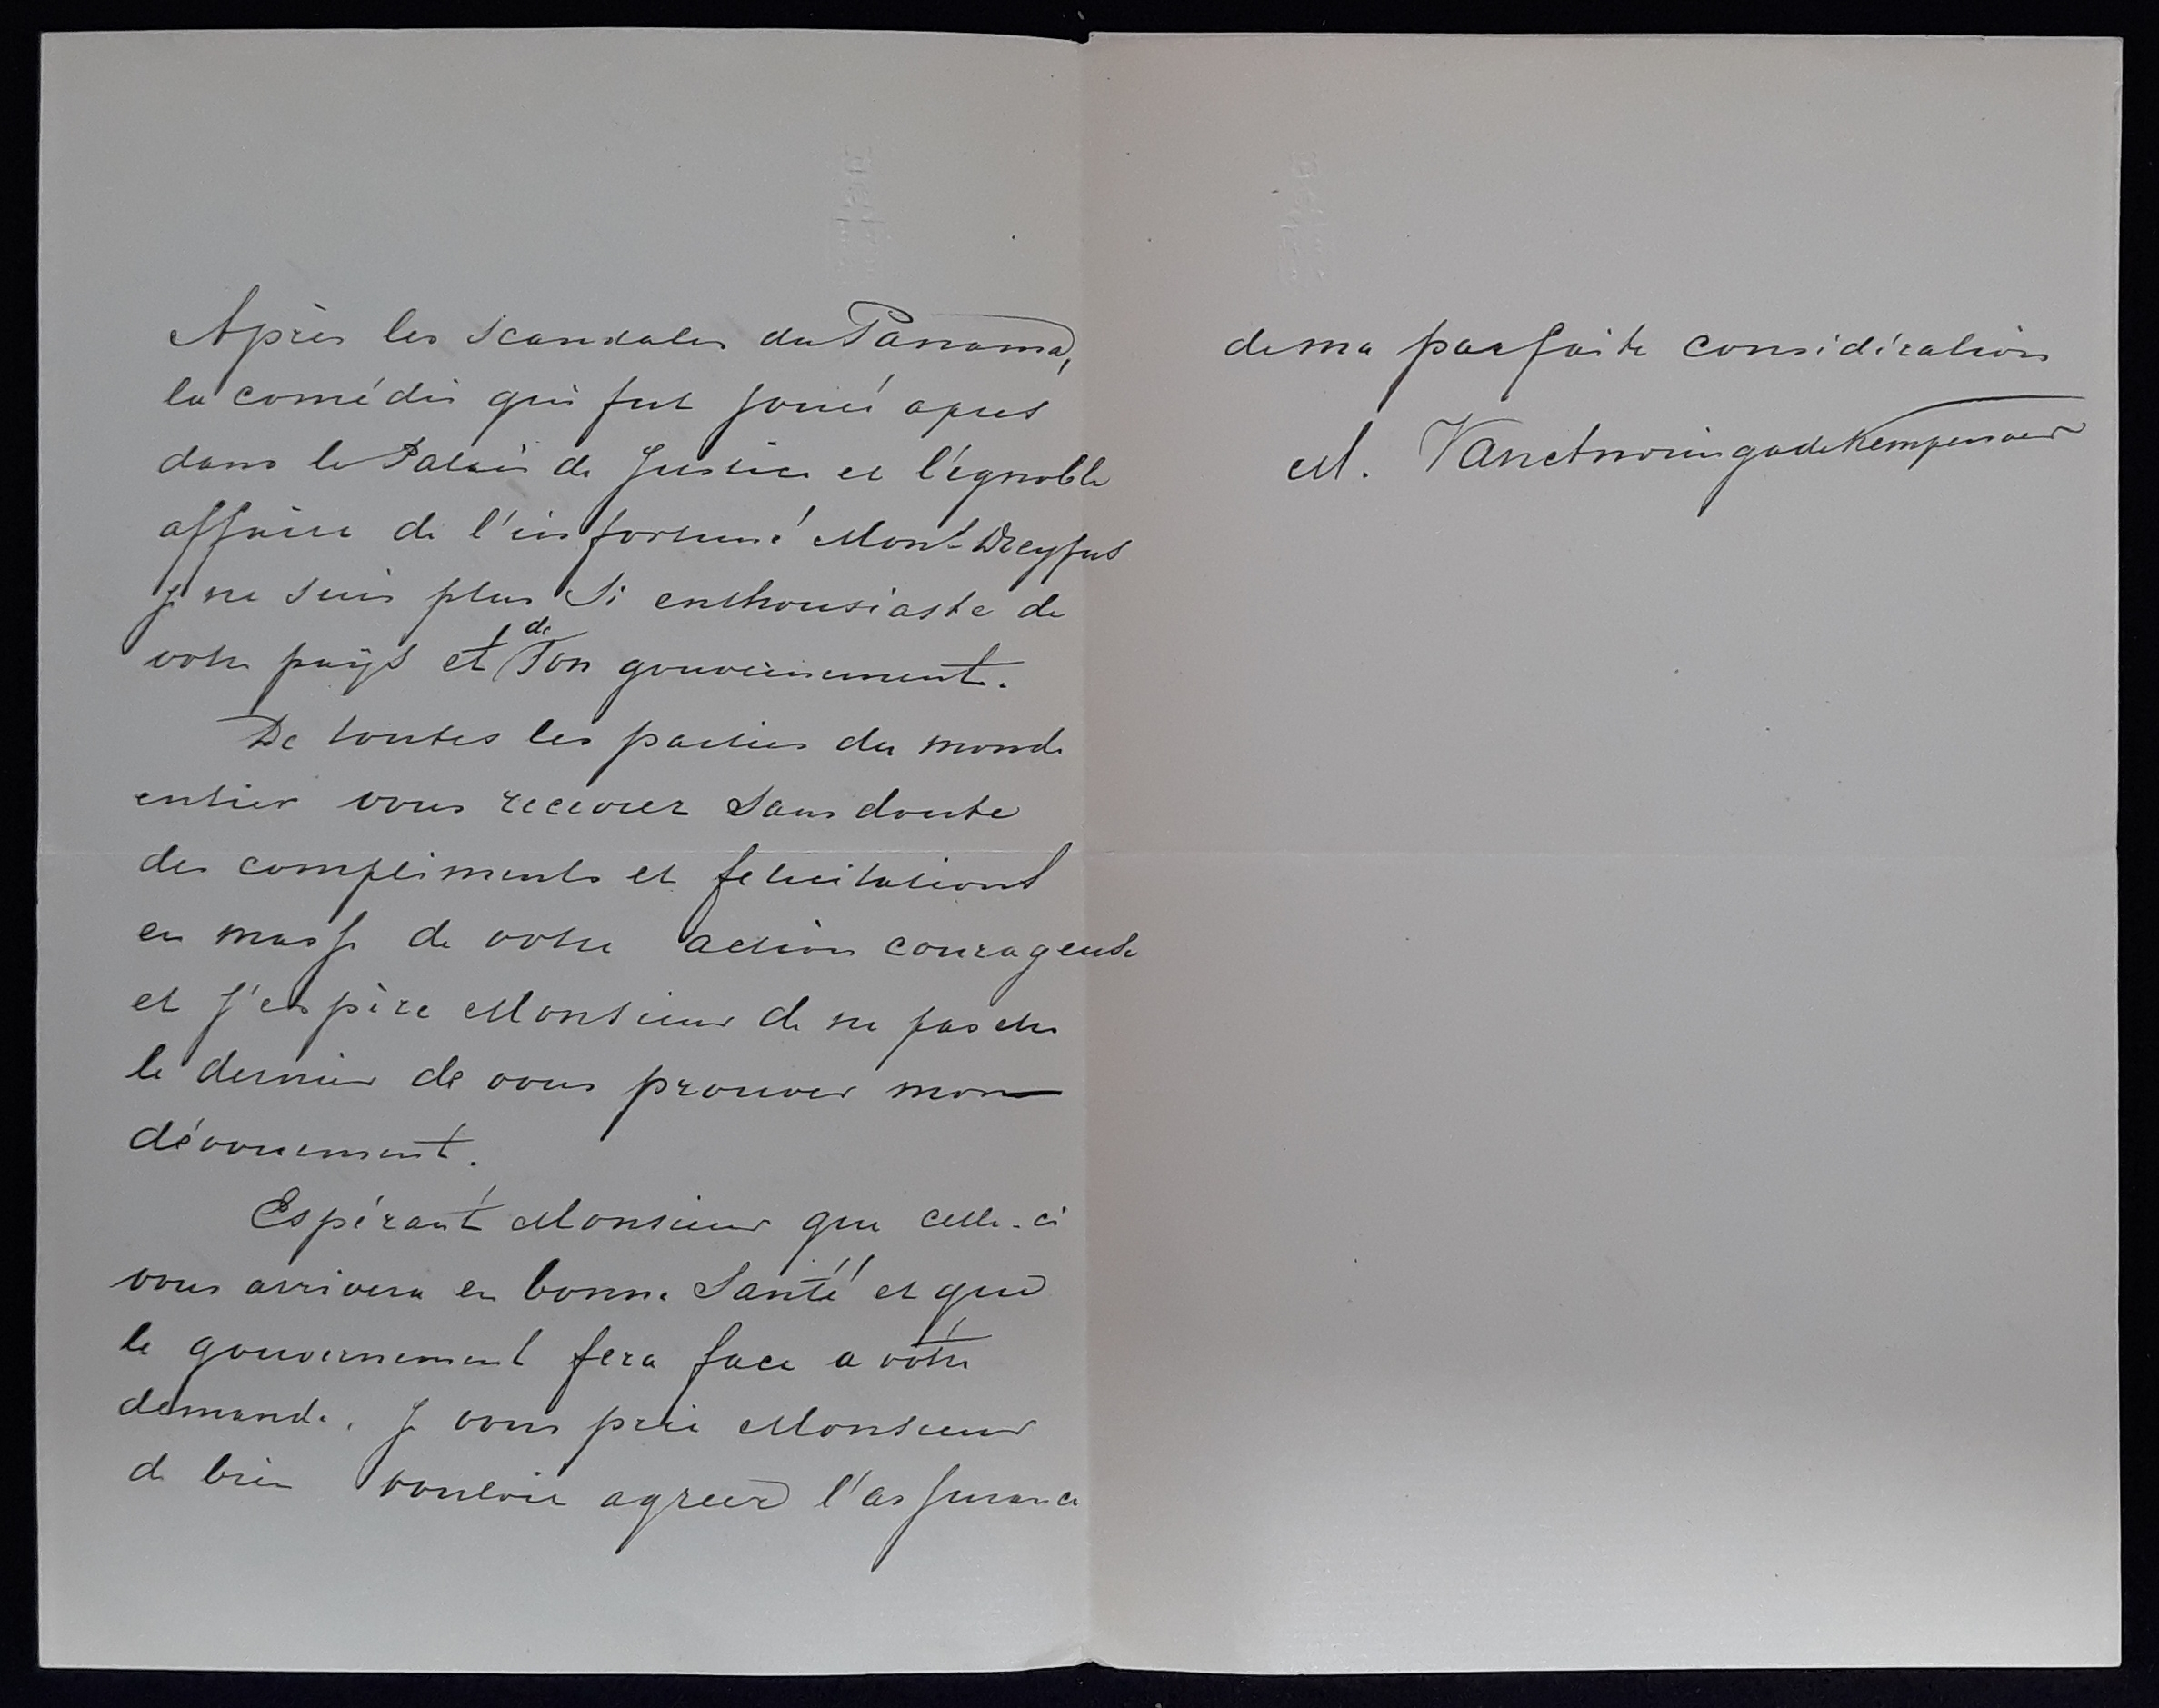 Après les scandales du Panama,
la comédie qui fut joué apres
dans le Palais de Justice et l'ignoble
affaire de l'infortuné Mons<sup>r</sup> Dreyfus
je ne suis plus si enthousiaste de
votre pays et de son gouvernement.
De toutes les parties du monde
entier vous recevrez sans doute
des compliments et felicitations
en masse de votre action courageuse
et j'espère Monsieur de ne pas être
le dernier de vous prouver mon
dévouement.
Espérant Monsieur que celle-ci
vous arrivera en bonne santé et que
le gouvernement fera face a votre
demande. Je vous prie Monsieur
de bien vouloir agreer l'assurance
de ma parfaite considération
M.